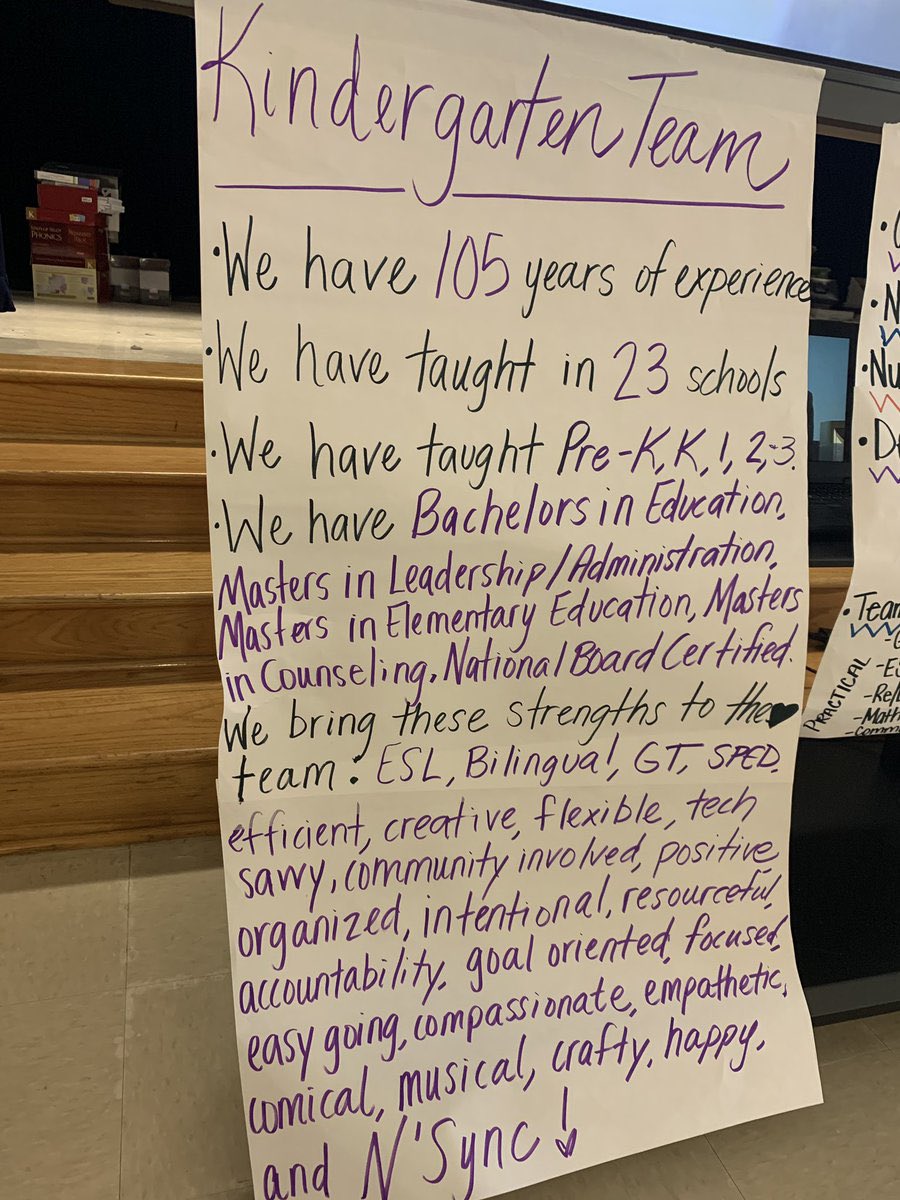 Kindergarten Team
·We have 105 years of experience
·We have taught in 23 schools
·We have taught Pre-K, K, 1, 2, +3.
·We have Bachelors in Education,
Masters in Leadership/Administration,
Masters in Elementary Education, Masters
in Counseling, National Board Certified.
We bring these strengths to the
team: ESL, Bilingual, GT, SPED,
efficient, creative, flexible, tech
savvy, community involved, positive,
organized, intentional, resourceful,
accountability, goal oriented, focused,
easy going, compassionate, empathetic,
comical, musical, crafty, happy,
and N'Sync!
PHONICS
·Team
PRACTICAL